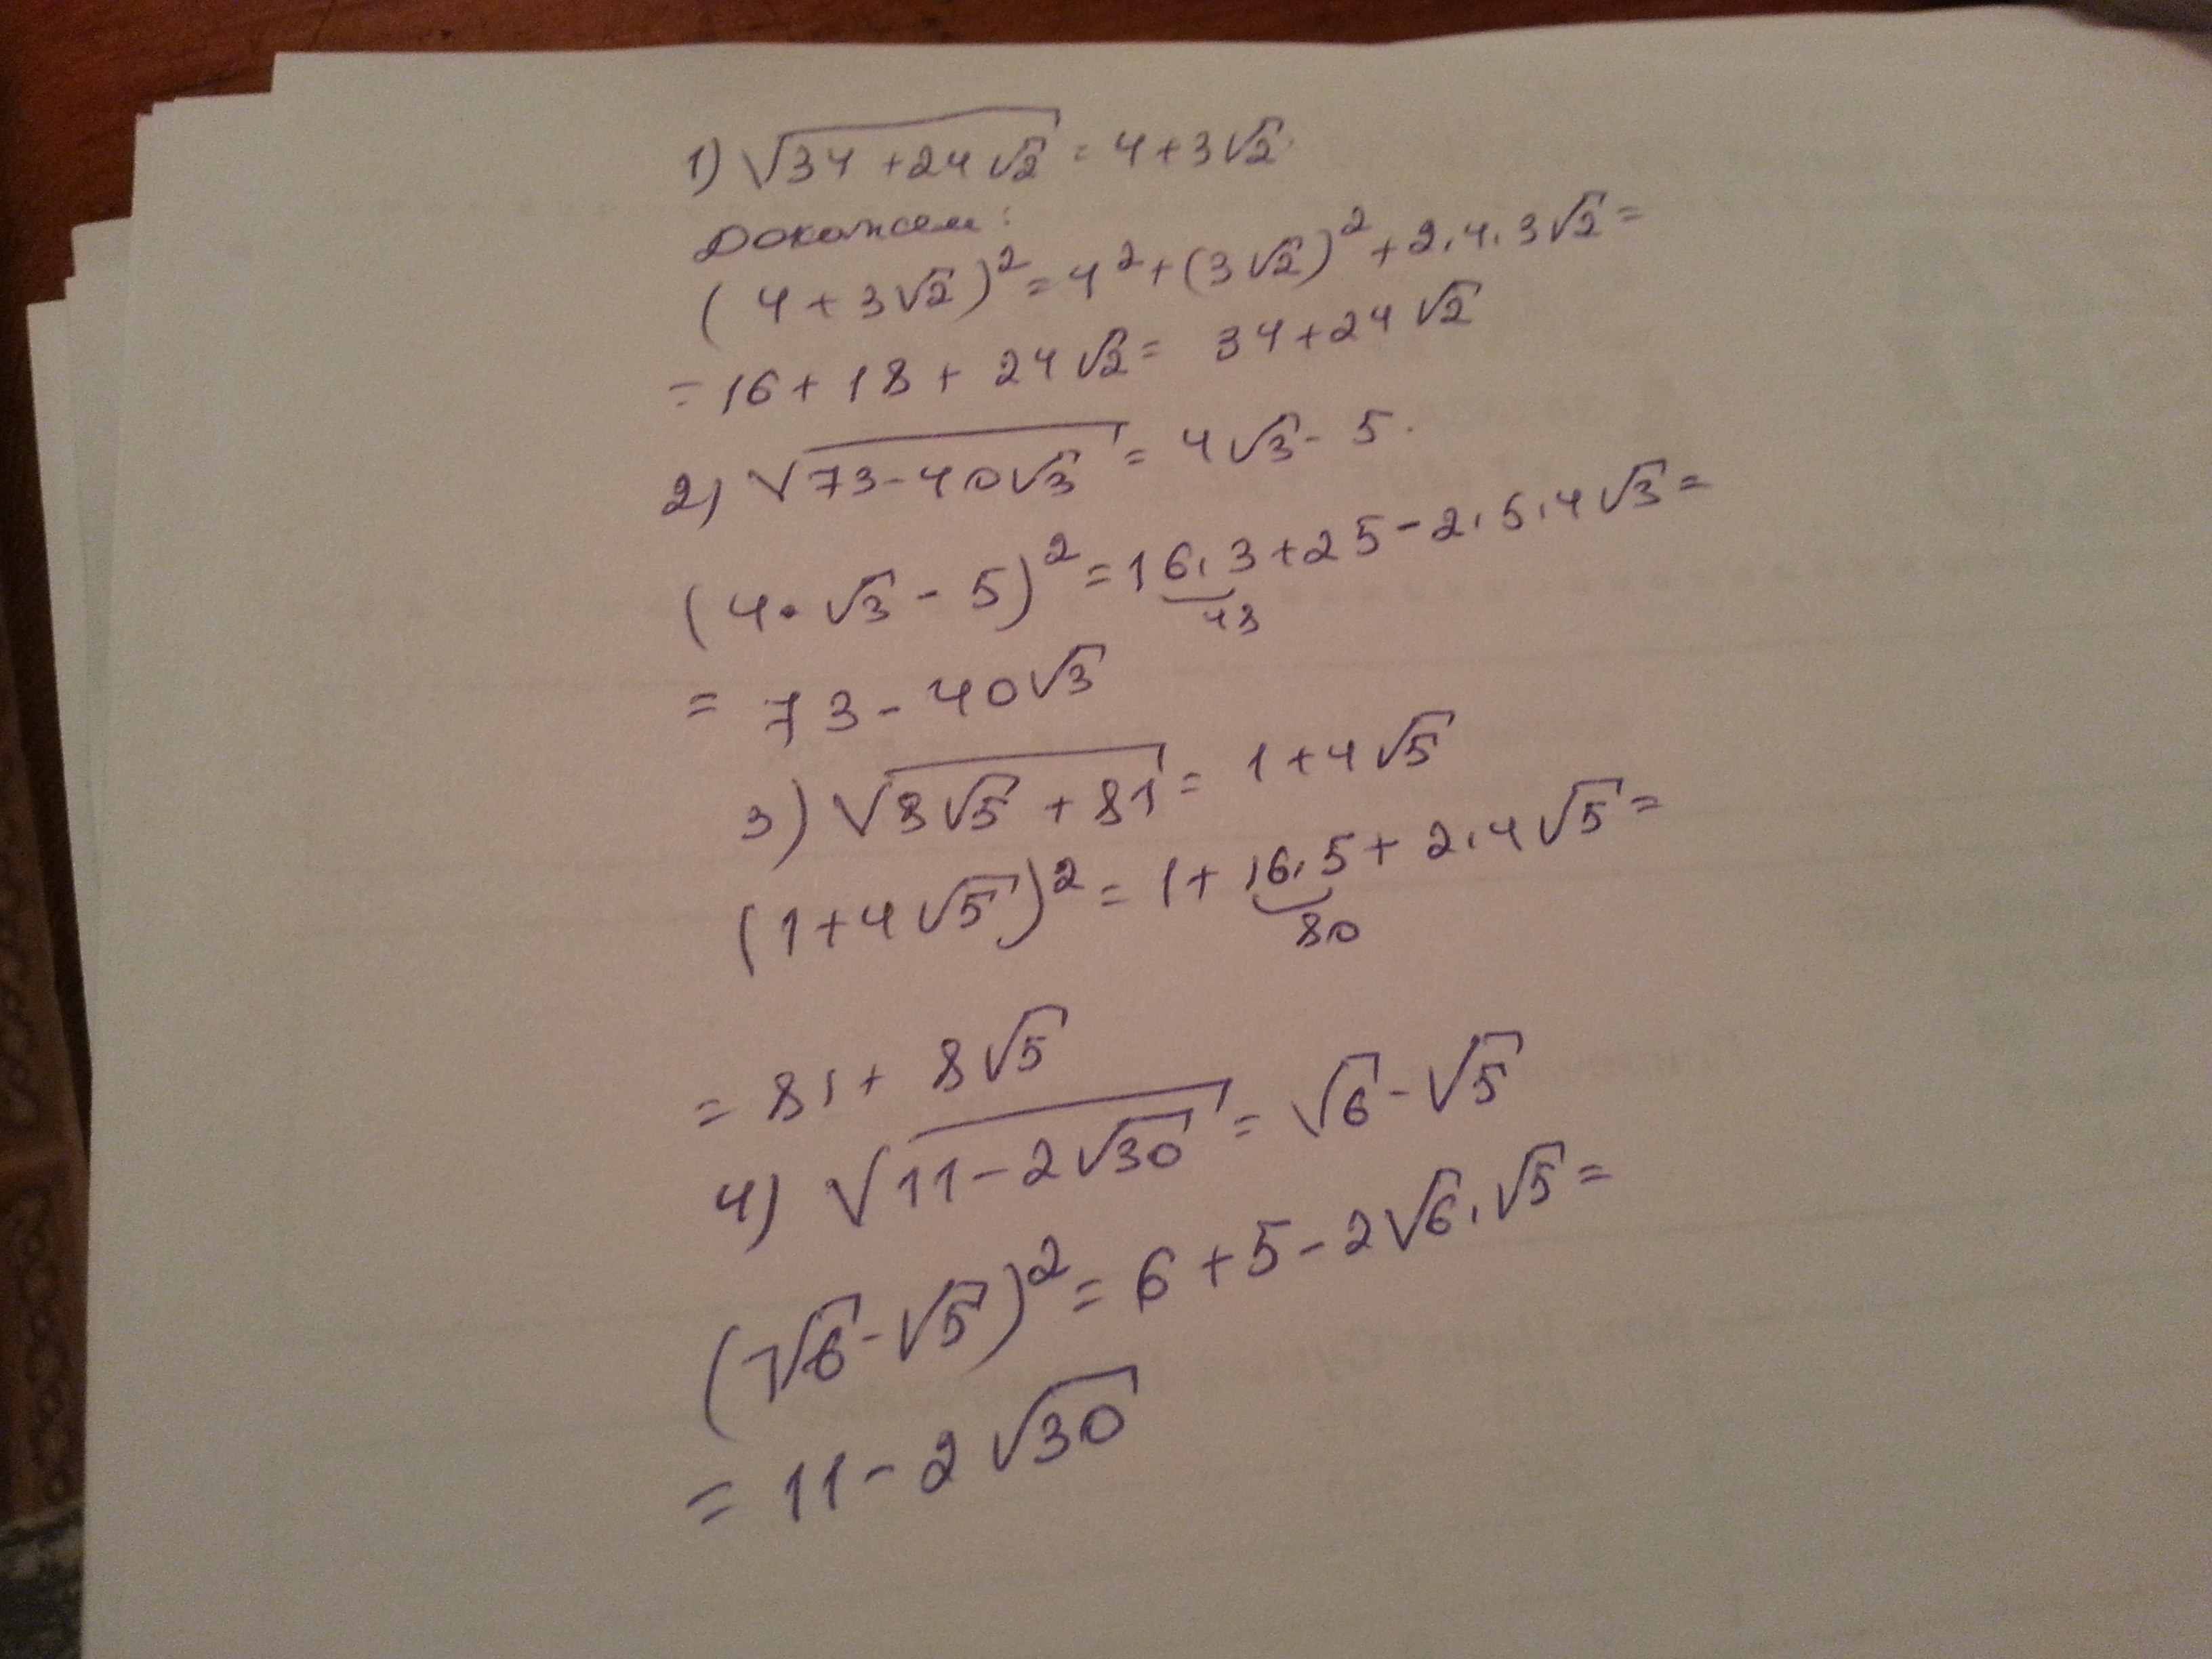 1) √(34+24√2) = 4+3√2.
Докажем:
(4+3√2)² = 4²+(3√2)²+2·4·3√2 =
= 16+18+24√2 = 34+24√2
2) √(73-40√3) = 4√3-5.
(4·√3-5)² = 16·3+25-2·5·4√3 =
48
= 73-40√3
3) √(8√5+81) = 1+4√5
(1+4√5)² = 1+16·5+2·4√5 =
80
= 81+8√5
4) √(11-2√30) = √6-√5
(√6-√5)² = 6+5-2√6·√5 =
= 11-2√30